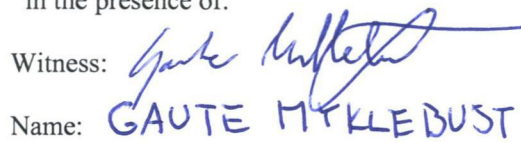 in the presence of:
Witness:
Name: GAUTE MYKLEBUST